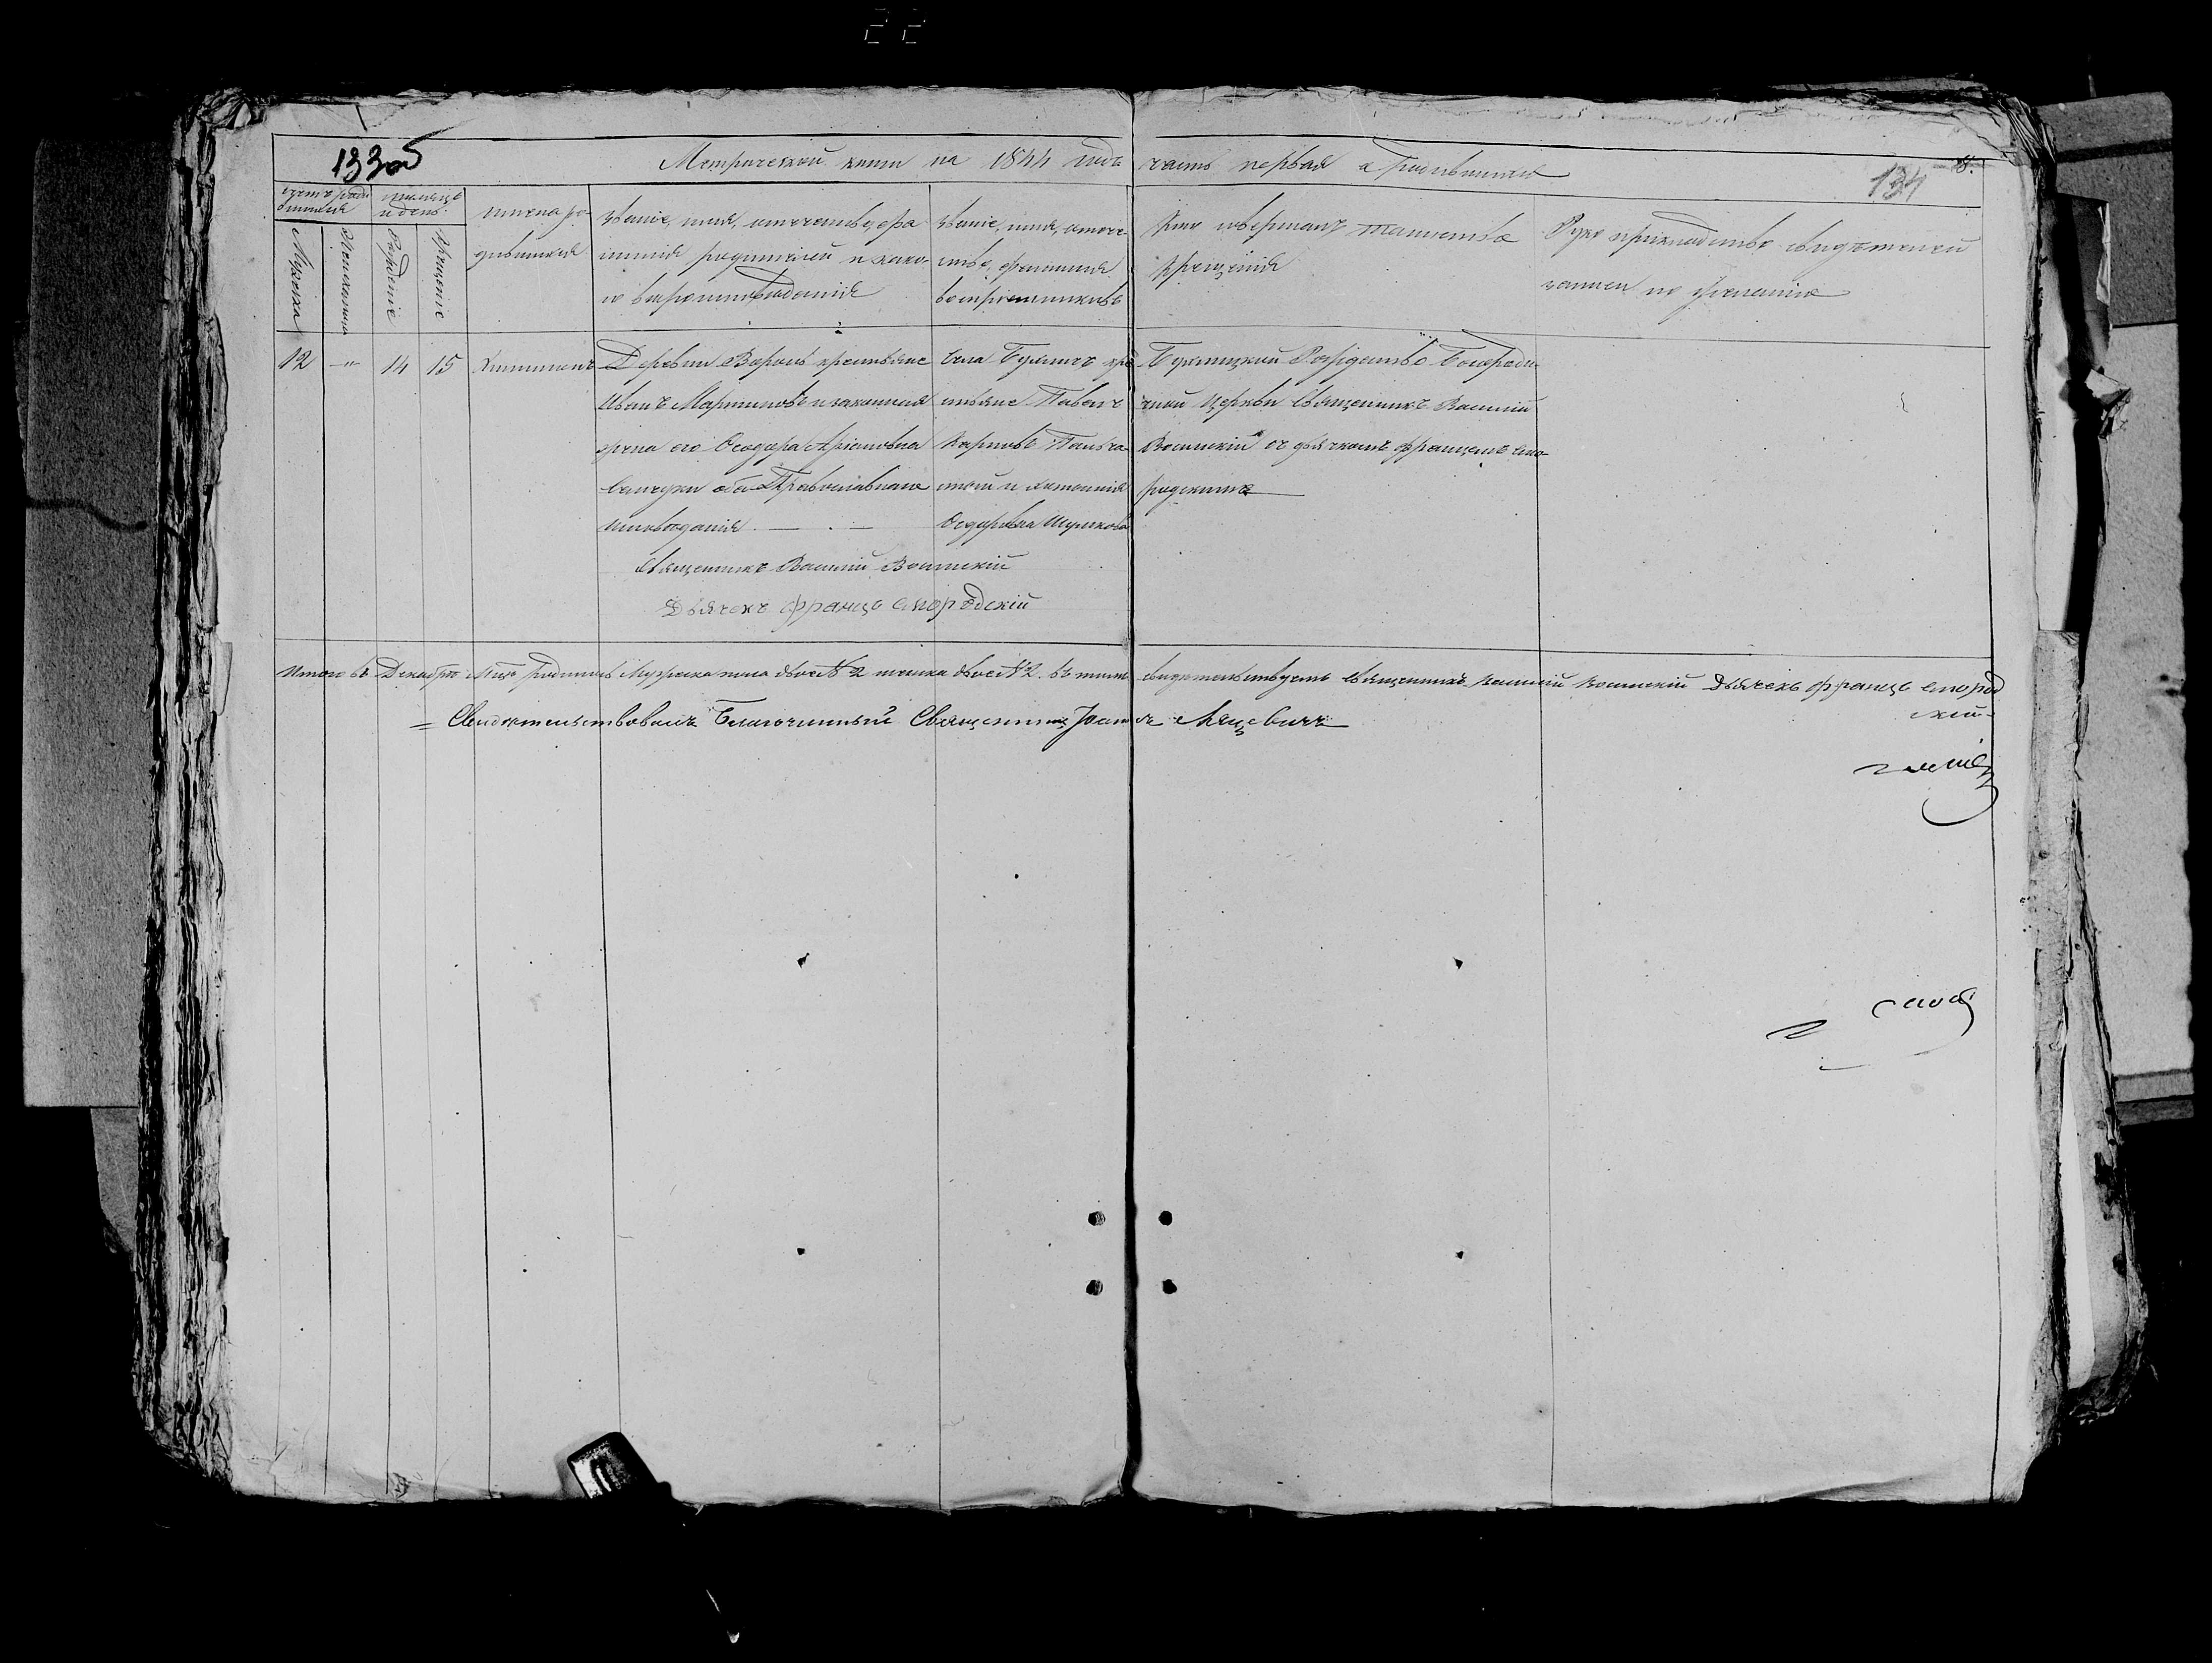 22
133об
Метрической книги на 1844 годъ часть первая о родившихся
134
8.
счетъ роди
вшихся
Мужеска
Женскаго
месяцъ
и день.
Рожденіе
Крещеніе
имена ро
дившихся
Званіе, имя, отчество, фа
милія родителей и како-
го вероисповеданія
Званіе, имя, отче-
ство, фамилия
воспріемниковъ
Кто совершалъ таинство
крещенія
Рукоприкладство свидетелей
записи по желанію
12
— " —
14
15
Деревни крестьяне
Иванъ Мартиновъ и законная
жена его Феодора
оба Православнаго
исповеданія . — . —
села кре
стьяне Павелъ
Карповъ
и Антонія
Федорова
Рождество Богороди-
чной Церкви Священникъ Василій
Воинскій съ дьячкомъ Францемъ Смо-
родскимъ
Священникъ Василій Воинскій
Дьячекъ Францъ Смородскій
Итого въ Декабре М-це родилось Мужеска пола двое № 2 женска двое № 2. въ томъ свидетельствуетъ Священникъ Василій Воинскій Дьячекъ Францъ Смород
скій
= Свидетельствовалъ Благочинный Священникъ Іоаннъ